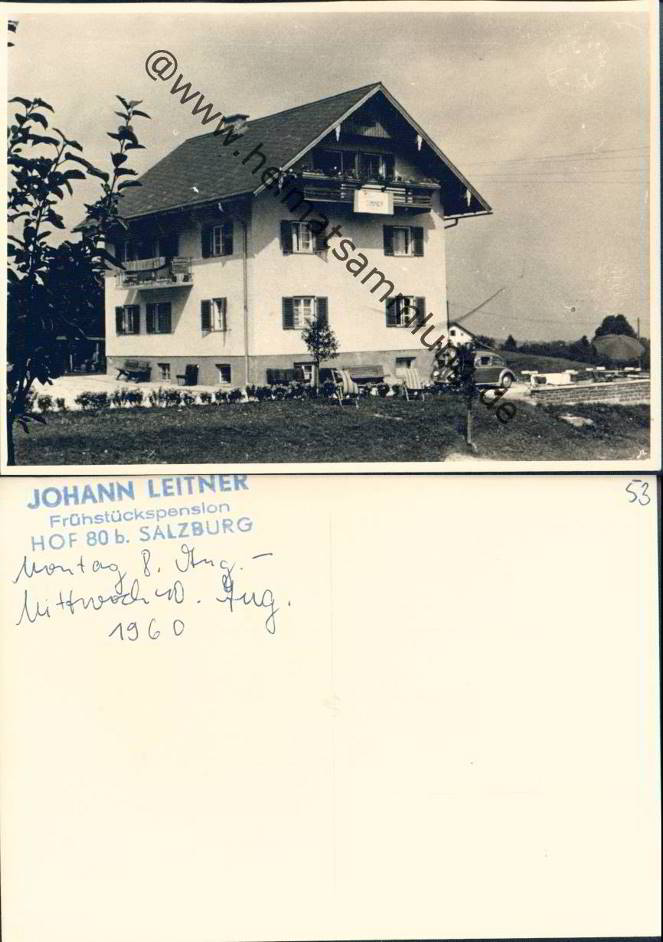 @www.heimatsammlung.de
ZIMMER
JOHANN LEITNER
Frühstückspension
HOF 80 b. SALZBURG
Montag 8. Aug. –
Mittwoch 10. Aug.
1960
53